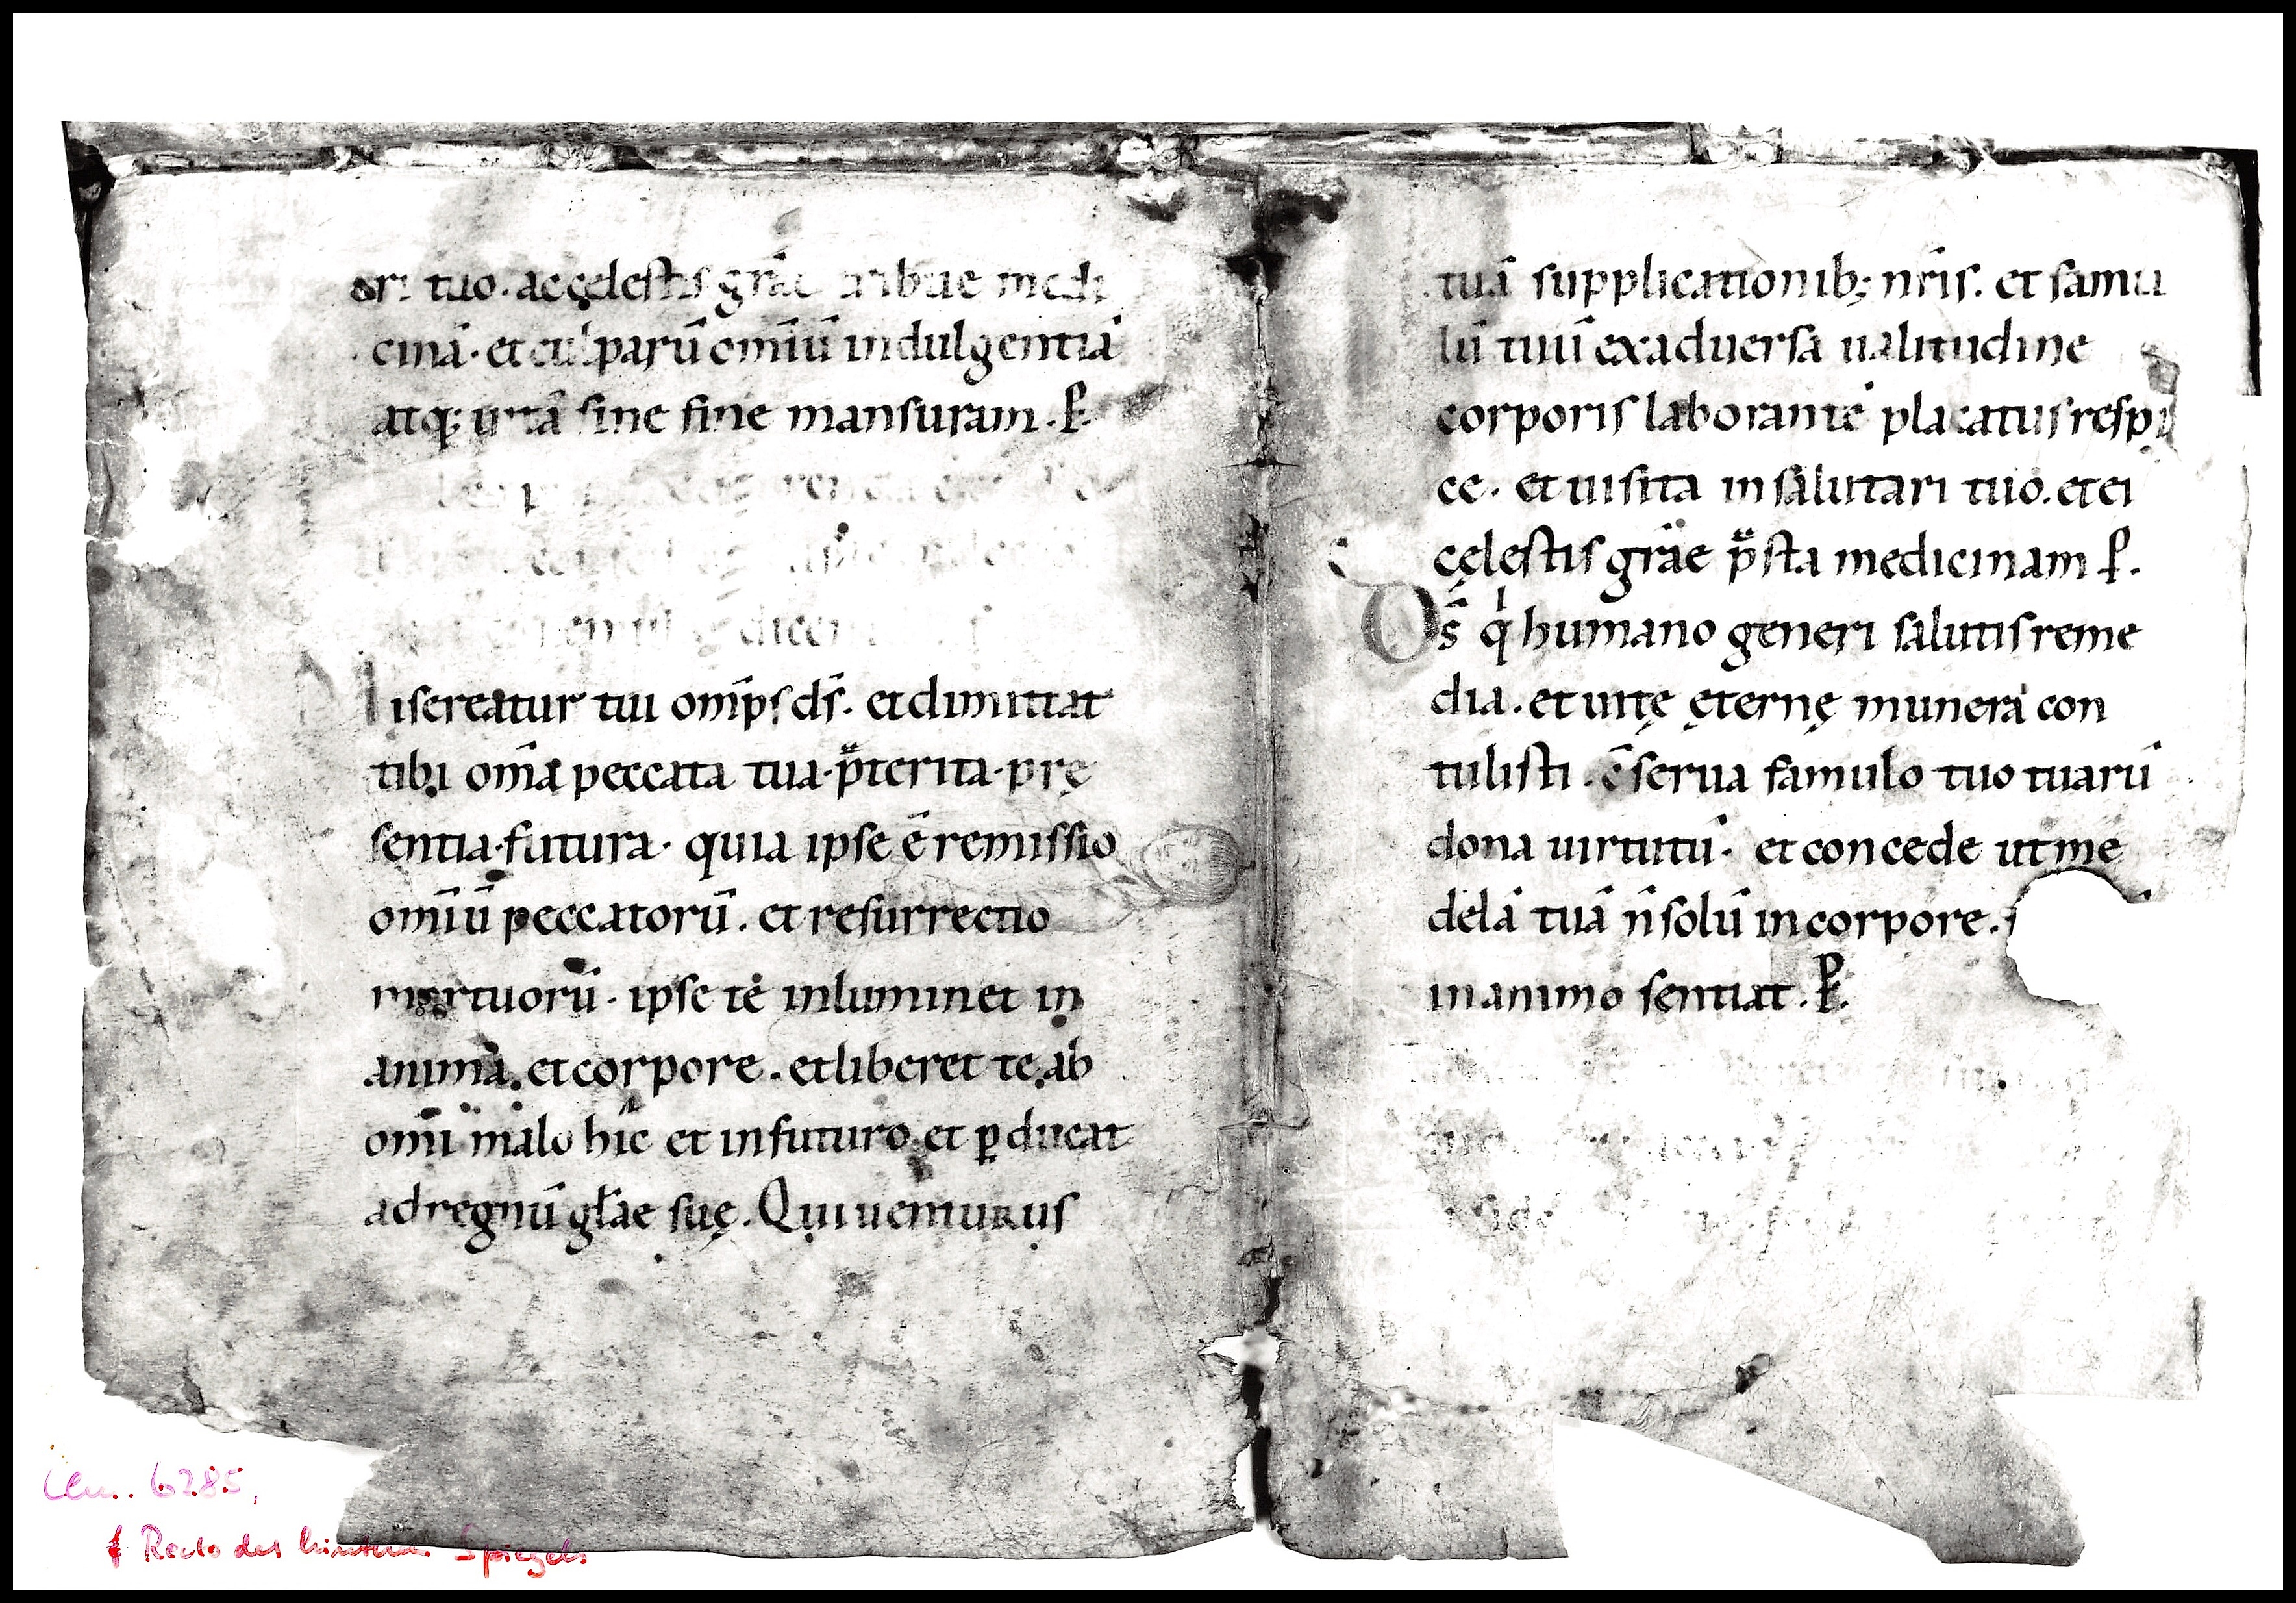 tuo. ac cęlestis gr̄ae tribue medi
cinā. et culparū om̄iū indulgentiā
atq; uitā sine fine mansuram. P.
isereatur tui om̄ps ds̄. et dimittat
tibi om̄a peccata tua. p̄terita. prę
sentia. futura. quia ipse ē remissio
om̄iū peccatorū. et resurrectio
mortuorū. ipse te inluminet in
anima. et corpore. et liberet te ab
om̄i malo hic et in futuro. et ꝑducat
ad regnū gl̄ae suę. Qui uenturus
tuā supplicationib; nr̄is. et famu
lū tuū ex aduersa ualitudine
corporis laborantē placatus respi
ce. et uisita in salutari tuo. et ei
cęlestis gr̄ae p̄sta medicinam P.
Ds̄ q̍ humano generi salutis reme
dia. et uitę ęternę munera con
tulisti. c̄serua famulo tuo tuarū
dona uirtutū. et concede ut me
delā tuā n̄ solū in corpore.
in animo sentiat. P.
Clm. 6285,
Recto des hinteren Spiegels